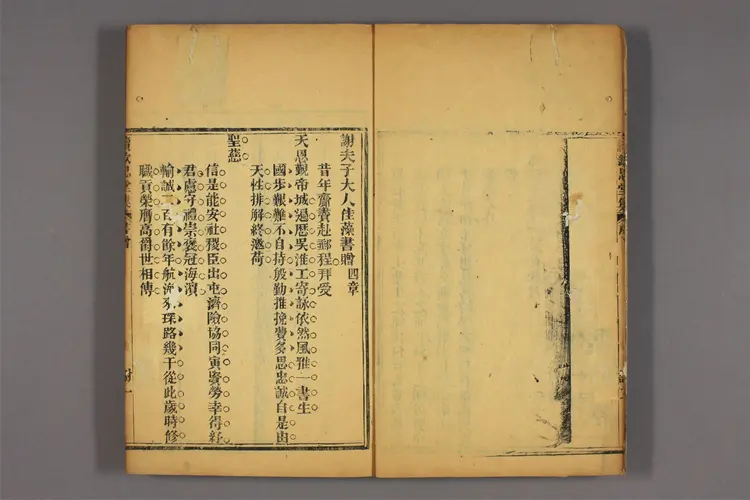 謝夫子大人佳藻書贈四章
昔年齎賚赴郵程拜爱
天恩覲帝城遍歷吳淮工寄詠依然風雅一書生
國步艱難不自持殷勤推挽費多思忠誠自是由
天性排解終邀荷
聖慈
信是能安社稷臣出屯濟險協同寅賢勞幸得紓
君慮守禮崇褒冠海濱
輸誠 百有餘年航海 琛路幾千從此歲時修
職貢榮膺高爵世相傳